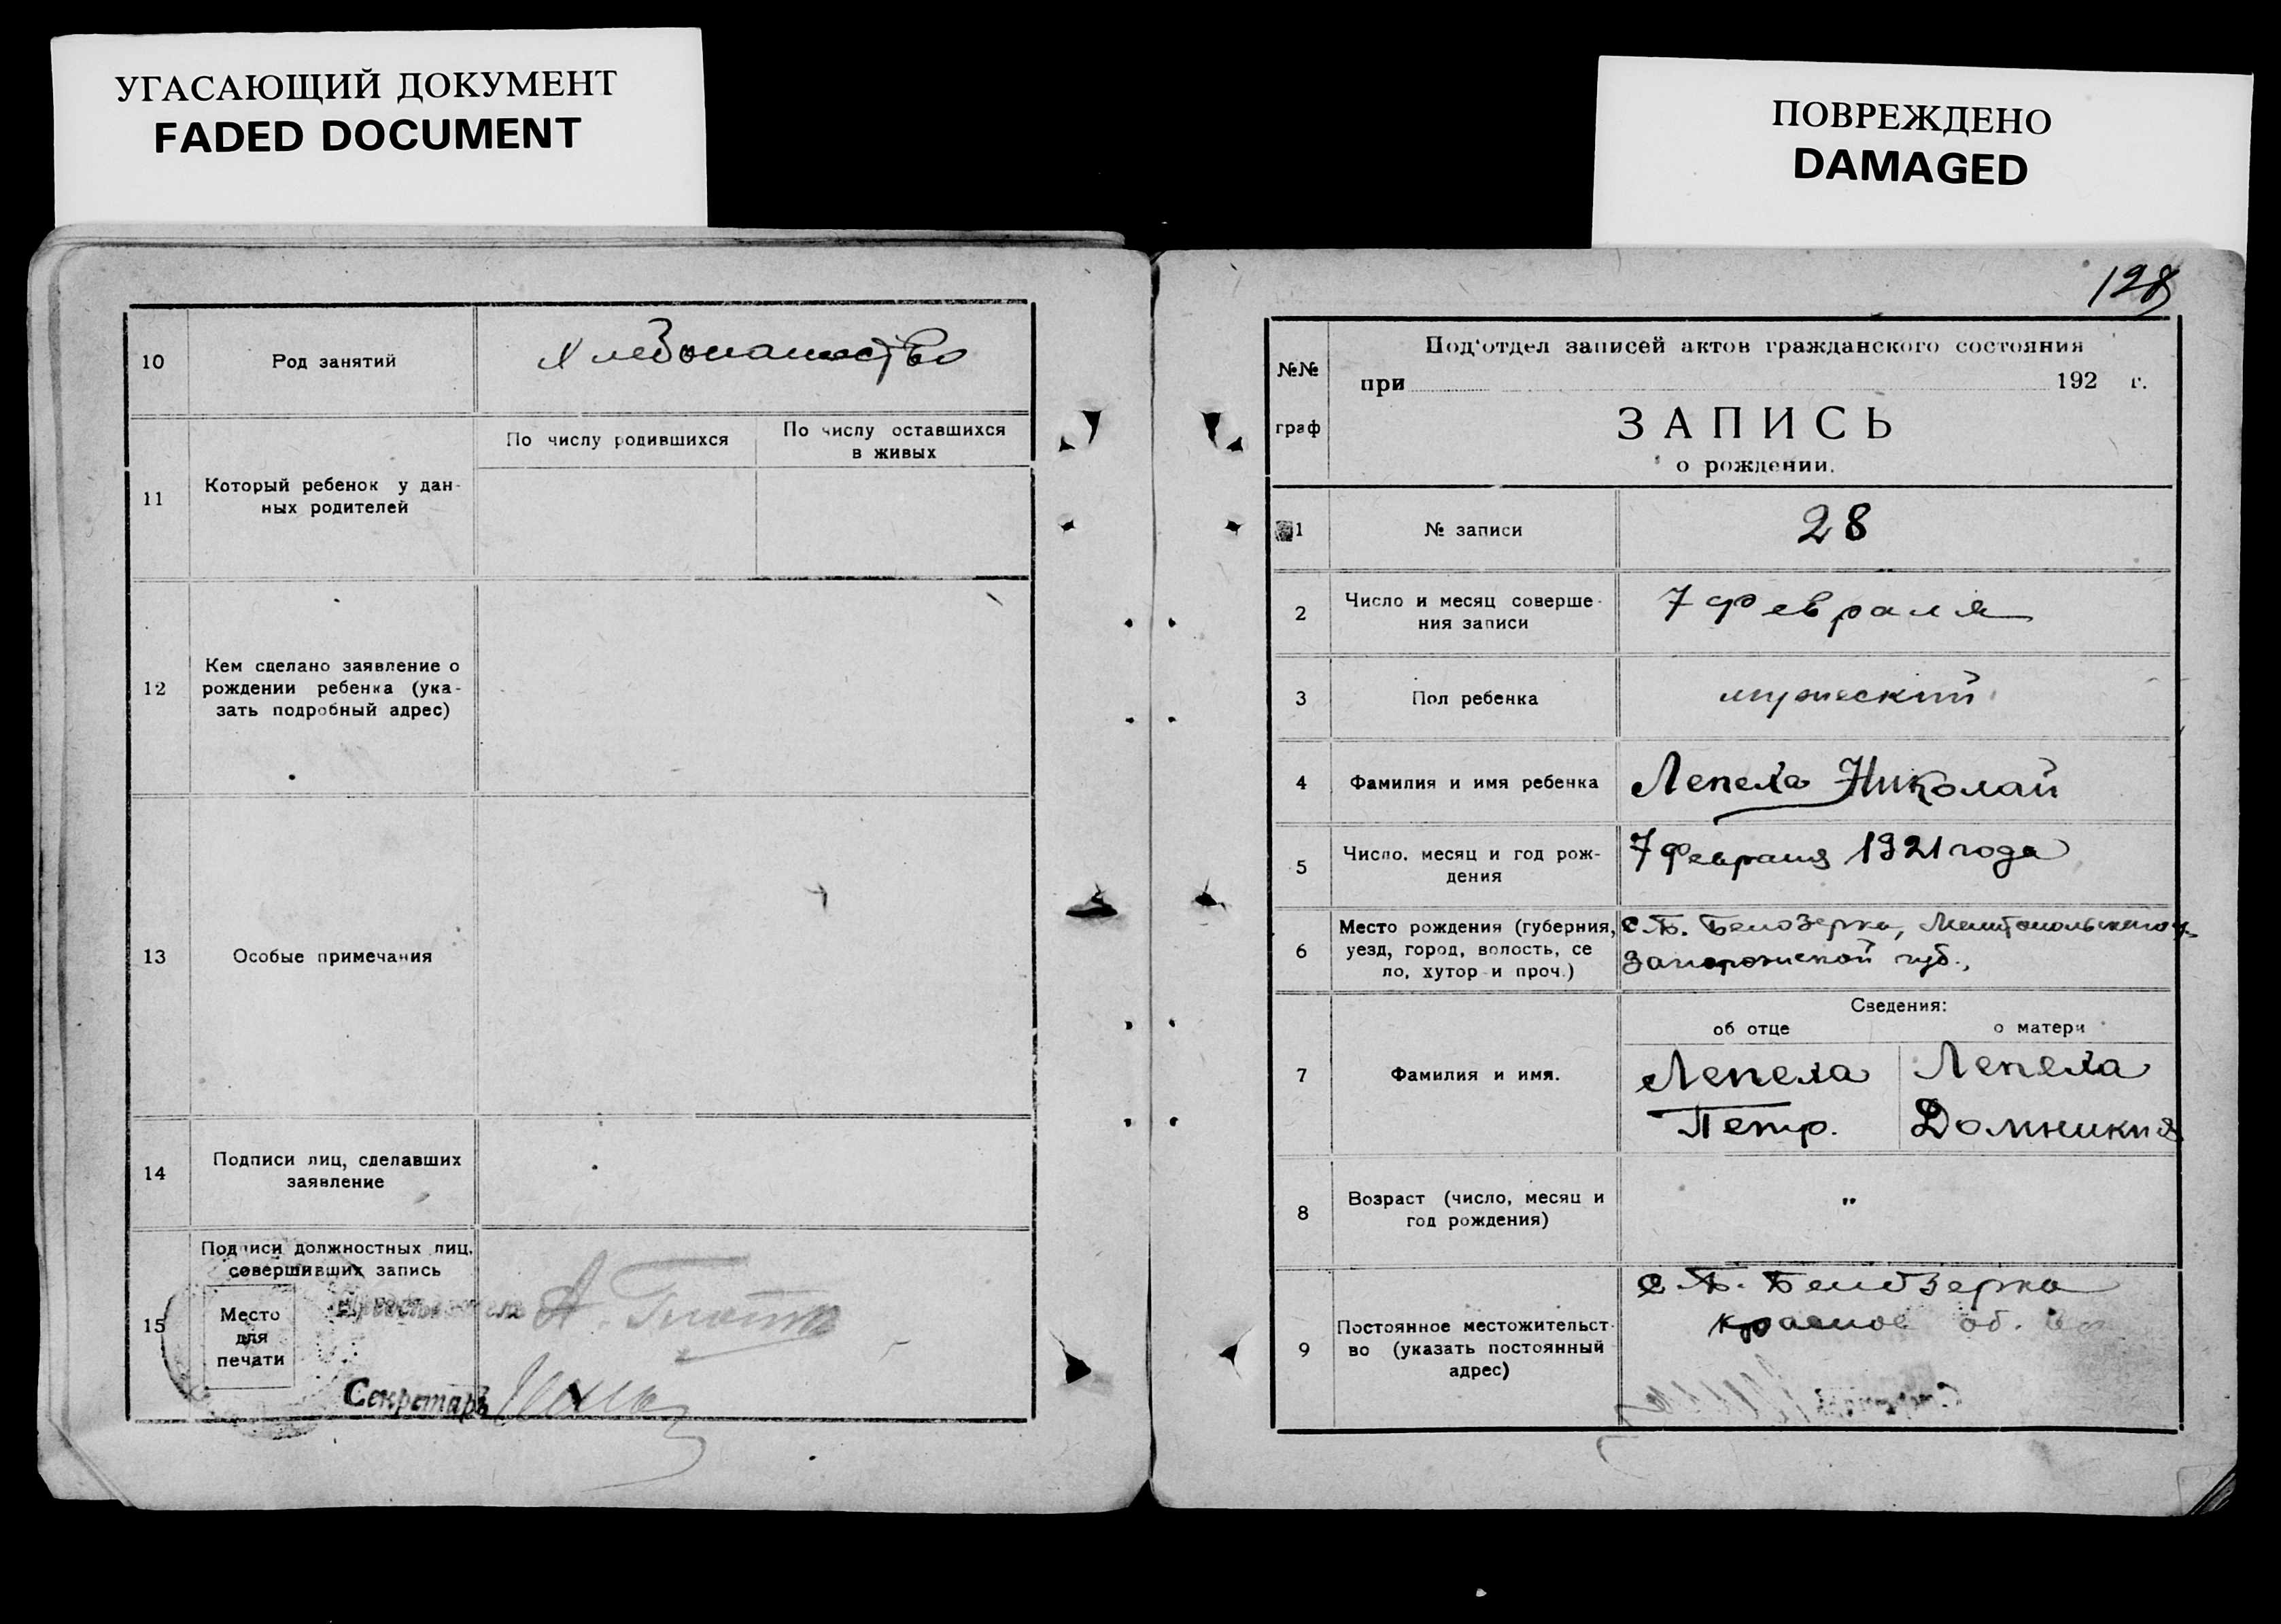 УГАСАЮЩИЙ ДОКУМЕНТ
FADED DOCUMENT
ПОВРЕЖДЕНО
DAMAGED
10 Род занятий Хлебопашество
11 Который ребенок у дан-
ных родителей
По числу родившихся
По числу оставшихся
в живых
12 Кем сделано заявление о
рождении ребенка (ука-
зать подробный адрес)
13 Особые примечания
14 Подписи лиц, сделавших
заявление
15 Подписи должностных лиц,
совершивших запись
Место
для
печати
А.
Секретарь
128
№№
граф
Под'отдел записей актов гражданского состояния
при 192 г.
ЗАПИСЬ
о рождении.
1 № записи 28
2 Число и месяц соверше-
ния записи
7 февраля
3 Пол ребенка мужеский
4 Фамилия и имя ребенка Лепеха Николай
5 Число, месяц и год рож-
дения
7 февраля 1921 года
6 Место рождения (губерния,
уезд, город, волость, се
ло, хутор и проч.)
с. Б. Белозерка, Мелитопольского у.
Запорожской губ.,
Сведения:
об отце
о матери
7 Фамилия и имя.
Лепеха
Петр.
Лепеха
Домникия
8 Возраст (число, месяц и
год рождения)
"
9 Постоянное местожительст-
во (указать постоянный
адрес)
с. Б. Белозерка
об.